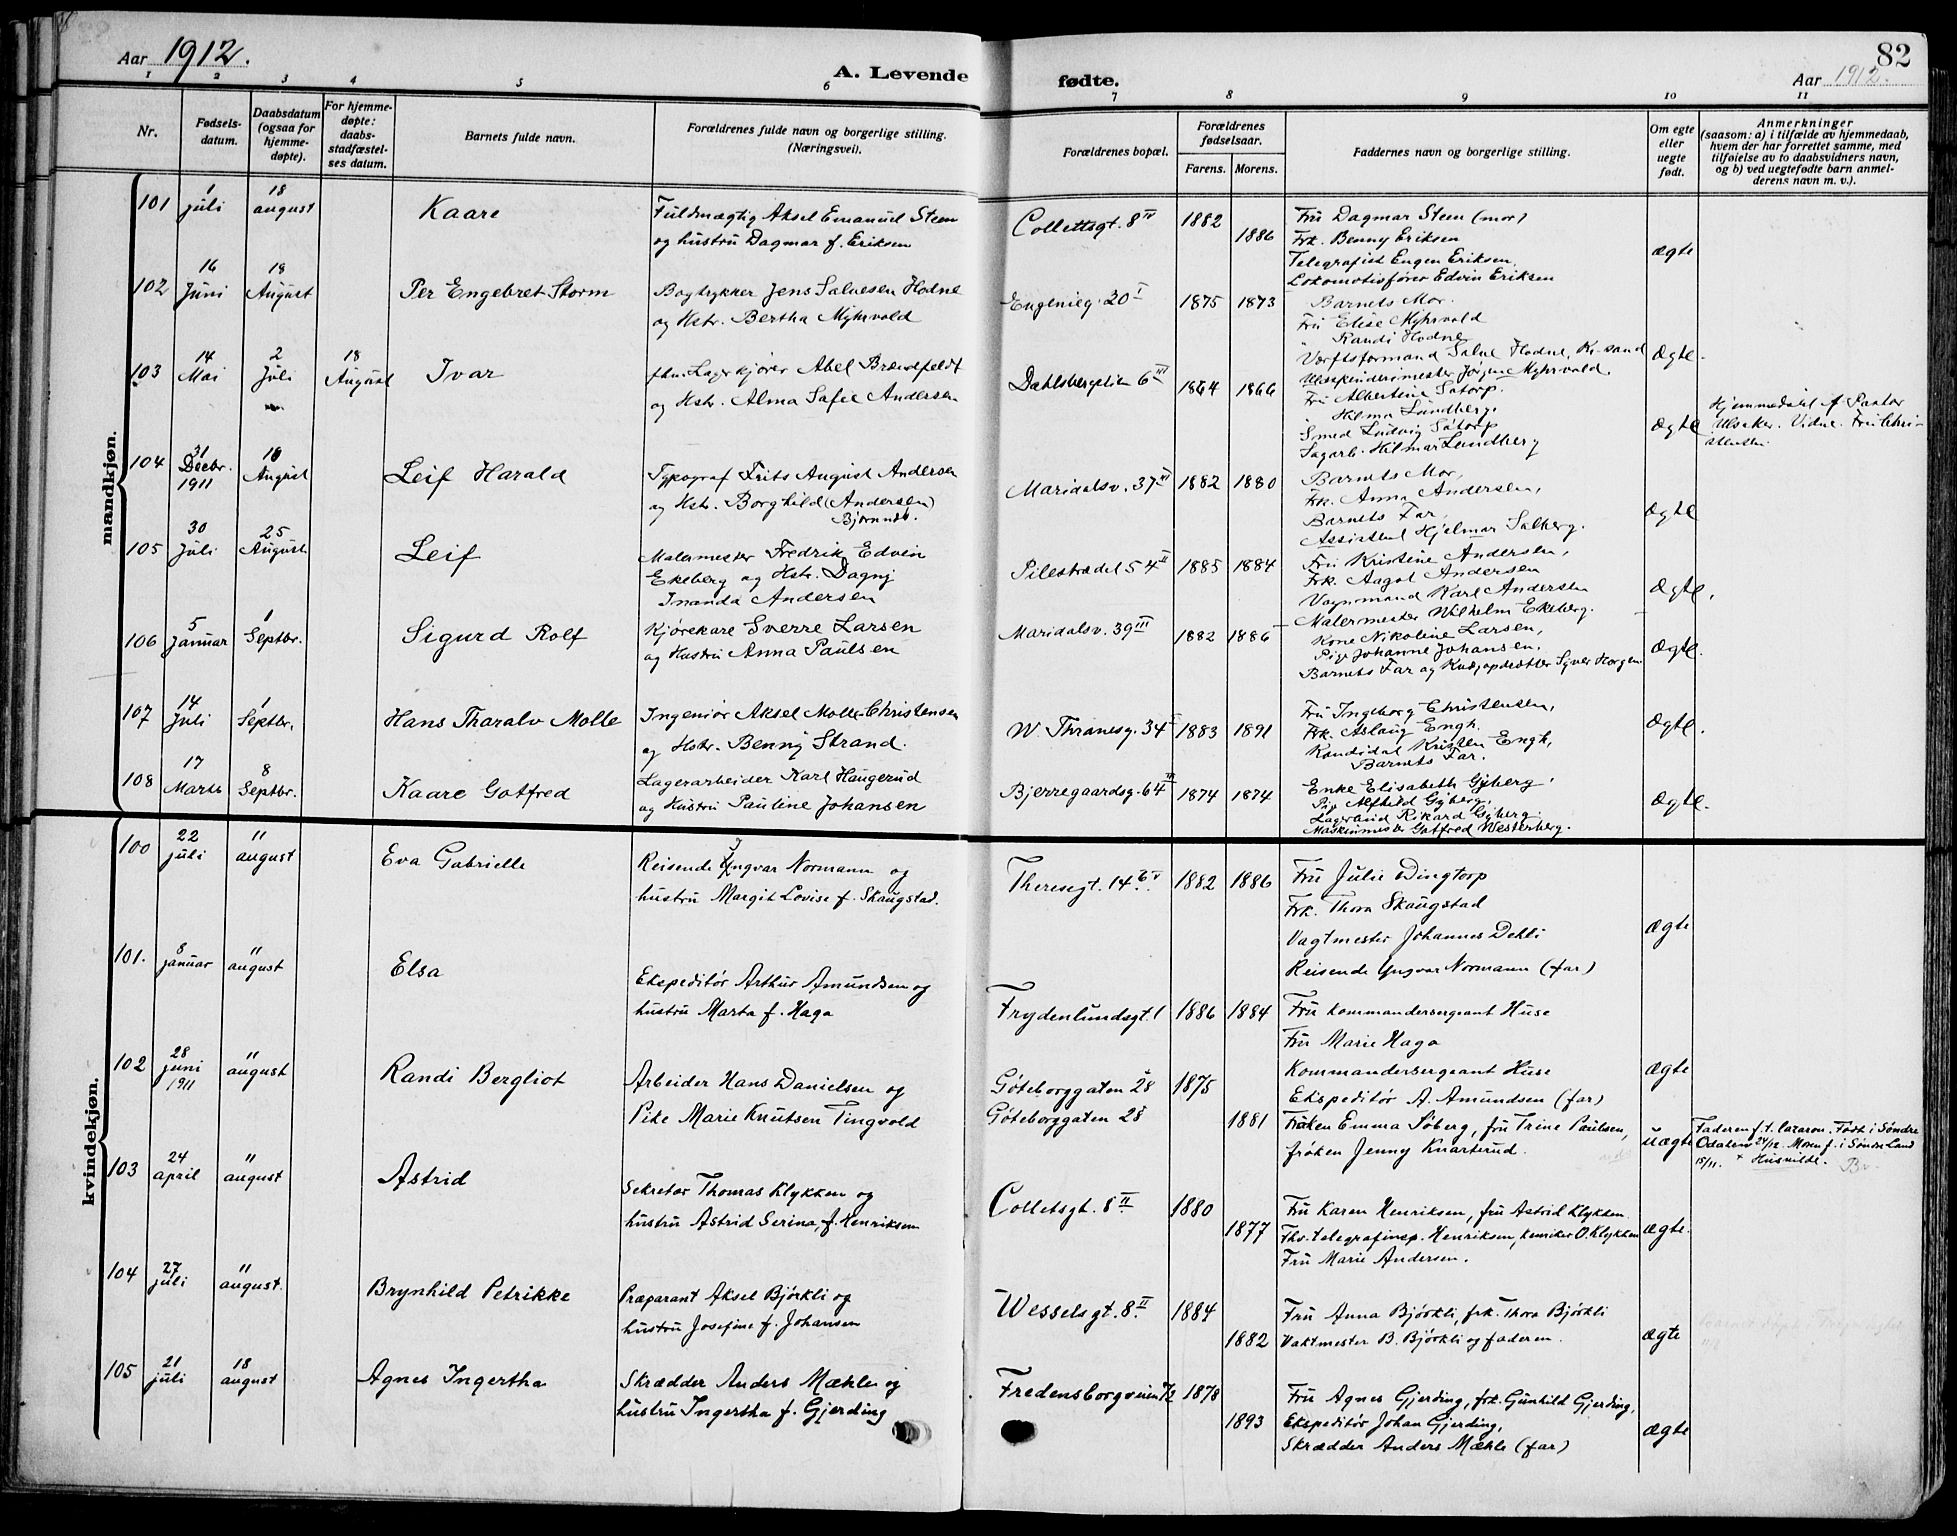 82
Aar 1912.
A. Levende fødte.
Aar 1912.
1 2 3 4 5 6 7 8 9 10 11
Nr.
Fødselsdatum.
Daabsdatum (ogsaa for hjemmedøpte).
For hjemmedøpte: daabsstadfæstelses datum.
Barnets fulde navn.
Forældrenes fulde navn og borgerlige stilling. (Næringsvei).
Forældrenes bopæl.
Forældrenes fødselsaar.
Farens. Morens.
Faddernes navn og borgerlige stilling.
Om egte eller uegte født.
Anmerkninger
(saasom: a) i tilfælde av hjemmedaab,
hvem der har forrettet samme, med
tilføielse av to daabsvidners navn,
og b) ved uegtefødte barn anmelderens navn m. v.).
mandkjøn.
101 1 juli 18 august Kaare
Fuldmægtig Aksel Emanuel Steen
og hustru Dagmar f. Eriksen
Collettsgt. 8 IV 1882 1886
Fru Dagmar Steen (mor)
Frk. Benny Eriksen
Telegrafist Eugen Eriksen
Lokomotivfører Edvin Eriksen
ægte
102 16 Juni 18 August Per Engebret Storm
Bogtrykker Jens Salvesen Hodne
og Hstr. Bertha Myhrvold
Eugenieg. 20 I 1875 1873
Barnets Mor.
Fru Elise Myhrvold
" Randi Hodne
Værftsformand Salve Hodne, Kr.sand
Myhrvold.
Ægte.
103 14 Mai 2 Juli 18 August Ivar
Lagerkjører Abel Brændfeldt
og Hstr. Alma Sofie Andersen
Dahlsbergstien 6 III 1864 1866
Fru Albertine Satorp.
" Hilma Lundberg.
Smed Ludvig Satorp
Sagarb. Hilmar Lundberg
Ægte
Hjemmedøbt af Pastor
Ulsaker. Vidne. Fru Christensen
104 31 Decbr. 1911 18 August Leif Harald
Typograf Frits August Andersen
og Hstr. Borghild (Andersen)
Maridalsv. 37 III 1882 1880
Barnets Mor,
Frk. Anna Andersen,
Barnets Far,
Assistent Hjelmar Salberg.
Ægte
105 30 Juli 25 August Leif
Malermester Fredrik Edvin
Ekeberg og Hstr. Dagny
Inanda Andersen
Pilestrædet 54 II 1885 1884
Fru Kristine Andersen,
Frk. Aagot Andersen
Vognmand Karl Andersen
Malermester Wilhelm Ekeberg.
Ægte.
106 5 Januar 1 Septbr. Sigurd Rolf
Kjørekare Sverre Larsen
og Hustru Anna Paulsen
Maridalsv. 39 III 1882 1886
Kone Nikoline Larsen,
Pige Johanne Johansen,
Barnets Far og Kvægopdrætter Syver Horgen
Ægte.
107 14 Juli 1 Septbr. Hans Tharalv Molle
Ingeniør Aksel Molle-Christensen
og Hstr. Benny Strand.
W Thranesg. 34 1883 1891
Fru Ingeborg Christensen,
Frk. Aslaug Engh.
Kandidat Kristen Engh,
Barnets Far.
Ægte.
108 17 Marts 8 Septbr. Kaare Gotfred
Lagerarbeider Karl Haugerud
og Hustru Pauline Johansen
Bjerregaardsg. 64 III 1874 1874
Enke Elisabeth Gyberg,
Pig Alfhild Gyberg,
Lagerbud Rikard Gyberg
Maskinmester Gotfred Westerberg.
Ægte.
kvindekjøn.
100 22 juli 11 august Eva Gabrielle
Reisende Yngvar Normann og
hustru Margit Lovise f. Skaugstad.
Theresgt. 14 1882 1886
Fru Julie Dingtorp
Frk. Thora Skaugstad
Vagtmester Johannes Dehli
Reisende Yngvar Normann (far)
ægte
101. 8 januar 11 august Elsa
Ekspeditør Arthur Amundsen og
hustru Marta f. Haga
Frydenlundsgt. 1 1886 1884
Fru Kommandersergeant Huse
Fru Marie Haga
Kommandersergeant Huse
Ekspeditør A. Amundsen (far)
ægte
102 28 juni 1911 11 august Randi Bergliot
Arbeider Hans Danielsen og
Pike Marie Knutsen Tingvold
Göteborggaten 28 1875
Göteborggaten 28 1881
Frøken Emma Søberg, fru Trine Paulsen,
frøken Jenny Knarterud.
uægte
Faderen f. t. lazaron. Født i Søndre
Odalen 24/12. Moren f. i Søndre Land
15/11. + Husvilde.
103 24 april 11 august Astrid
Sekretær Thomas Klykken og
hustru Astrid Serina, f. Henriksen
Colletsgt. 8 II 1880 1877
Fru Karen Henriksen, fru Astrid Klykken
Thv. telegrafinsp. Henriksen, kemiker O. Klykken
Fru Marie Andersen.
ægte.
104 27 juli 11 august. Brynhild Petrikke
Præparant Aksel Bjørkli og
hustru Josefine f. Johansen
Wesselsgt. 8 II 1884 1882
Fru Anna Bjørkli, frk. Thora Bjørkli
Vaktmester B. Bjørkli og faderen.
ægte
105 21 juli 18 august Agnes Ingertha
Skrædder Anders Mæhle og
hustru Ingertha f. Gjerding
Fredensborgveien 72 1878 1893
Fru Agnes Gjerding, frk. Gunhild Gjerding,
Ekspeditør Johan Gjerding,
Skrædder Anders Mæhle (far)
ægte